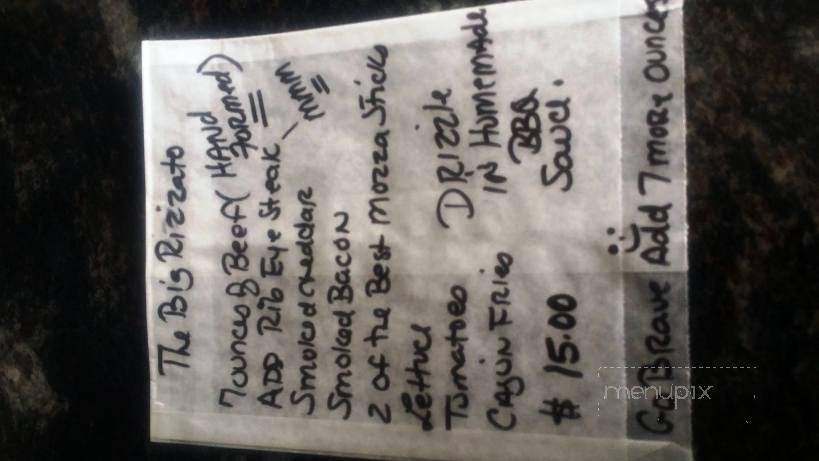 The Big Rizzato
7 ounces of Beef (HAND FORMED)
ADD Rib Eye Steak - mmm
Smoked cheddar
Smoked Bacon
2 of the Best mozza Sticks
Lettuce
Tomatoes
CAJUN FRIES
$ 15.00
DRIZZLE
IN HOMEMADE
BBQ
Sauce.
Brave Add 7 more ounces
menupix